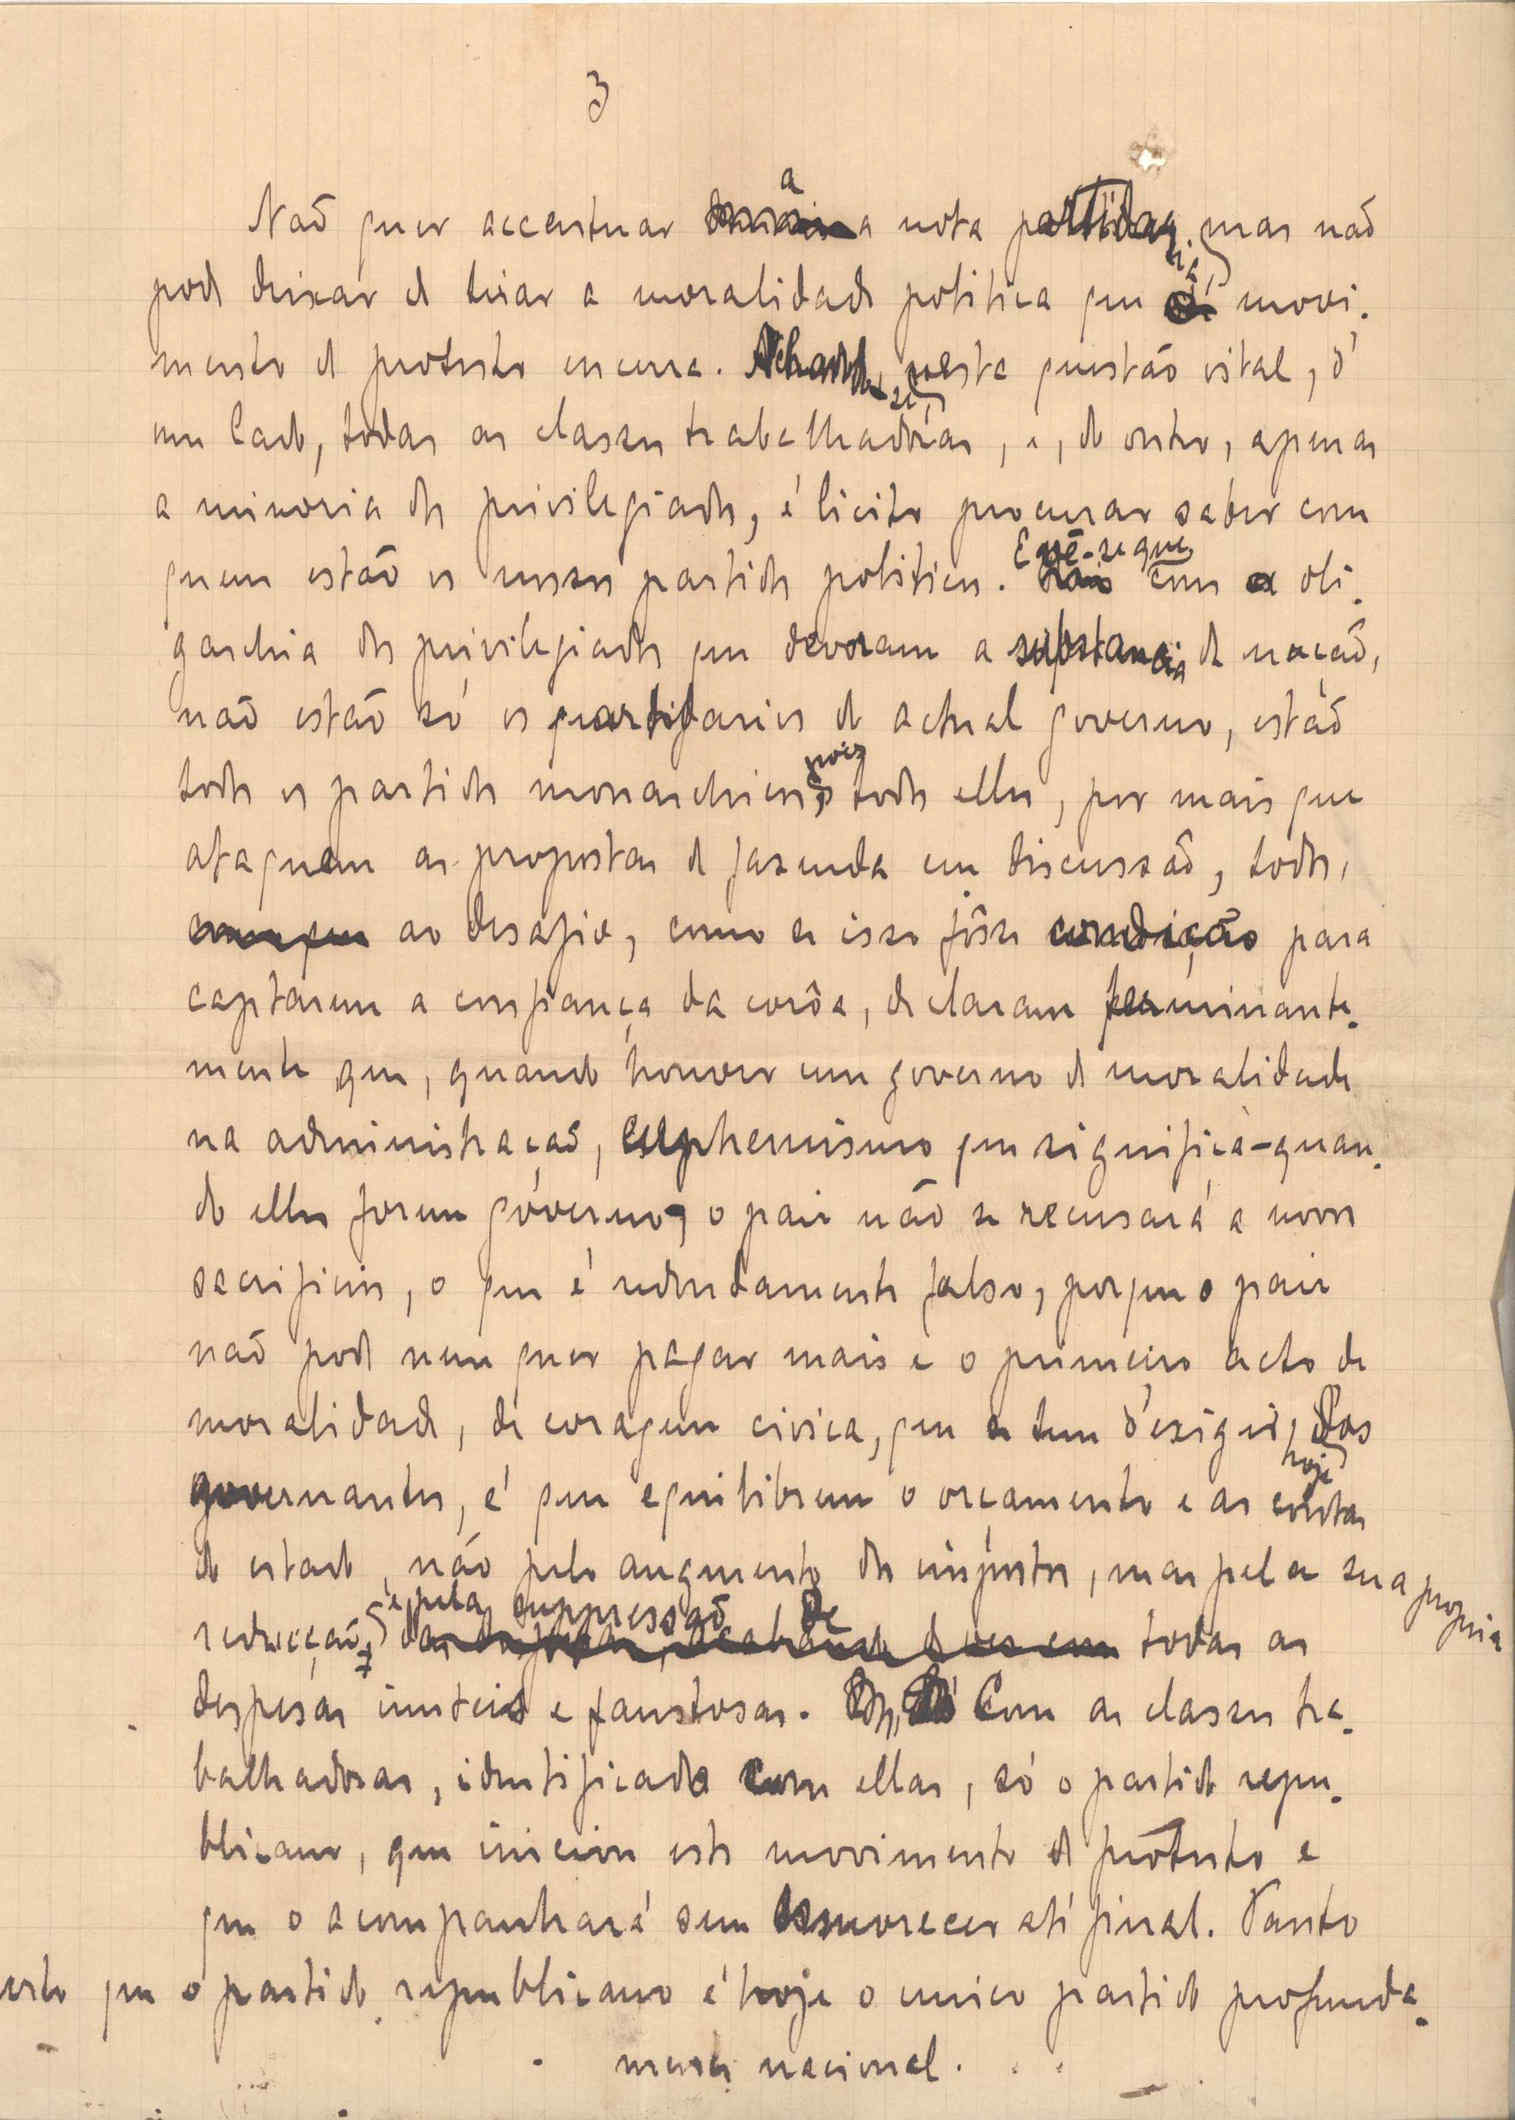 3
Não quer accentuar a nota partidaria, mas não
pode deixar de tirar a moralidade politica que movi-
mento de protesto encerra. Achando-se, nesta questão vital, d'
um lado, todas as classes trabalhadôras, e, do outro, apenas
a minoria dos privilegiados, é licito procurar saber com
quem estão os nossos partidos politicos. E vê-se que, com a oli-
garchia dos privilegiados que devoram a substancia da nação,
não estão só os partidarios do actual governo, estão
todos os partidos monarchicos, pois todos elles, por mais que
ataquem as propostas de fazenda em discussão, todos,
ao desafio, como se isso fôsse condição para
captarem a confiança da corôa, declaram terminante-
mente que, quando houver um governo de moralidade
na administração, euphemismo que significa - quan-
do elles forem govêrno, o paiz não se recusará a novos
sacrificios, o que é redondamente falso, porque o paiz
não pode nem quer pagar mais e o primeiro acto de
moralidade, de coragem civica, que se tem d'exigir, hoje, dos
governantes, é que equilibrem o orçamento e as contas
do estado, não pelo augmento dos impostos, mas pela sua propria
reducção, e pela suppressão de todas as
despesas inuteis e faustosas. Com as classes tra-
balhadoras, identificado com ellas, só o partido repu-
blicano, que iniciou este movimento de protesto e
que o acompanhará sem esmorecer até final. Tanto
certo que o partido republicano é hoje o unico partido profunda-
mente nacional.